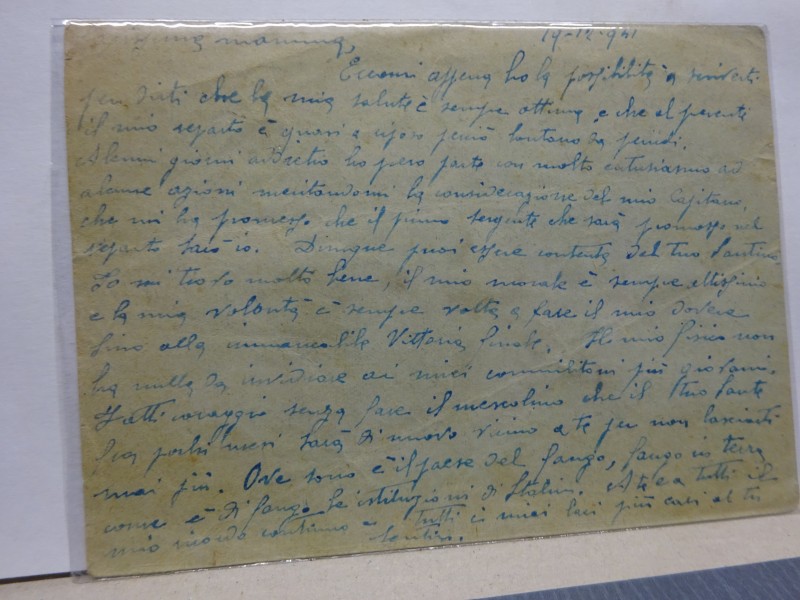 mia mamma,
19-12-941
Eccomi appena ho la possibilità a scriverti
per dirti che la mia salute è sempre ottima e che al presente
il mio reparto è quasi a riposo perciò lontano da pericoli.
Alcuni giorni addietro ho preso parte con molto entusiasmo ad
alcune azioni meritandomi la considerazione del mio Capitano,
che mi ha promesso che il primo sergente che sarà promosso nel
reparto sarò io. Dunque puoi essere contenta del tuo Santino.
Io mi trovo molto bene, il mio morale è sempre altissimo
e la mia volontà è sempre volta a fare il mio dovere
fino alla immancabile Vittoria finale. Il mio fisico non
ha nulla da invidiare ai miei commilitoni più giovani.
Fatti coraggio senza fare il meschino che il tuo Sante
tra pochi mesi sarà di nuovo vicino a te per non lasciarti
mai più. Ove sono è il paese del fango, fango in terra
come è di fango le istituzioni di Stalin. A te e a tutti il
mio ricordo continuo e tutti i miei baci più cari al tuo
Santino.